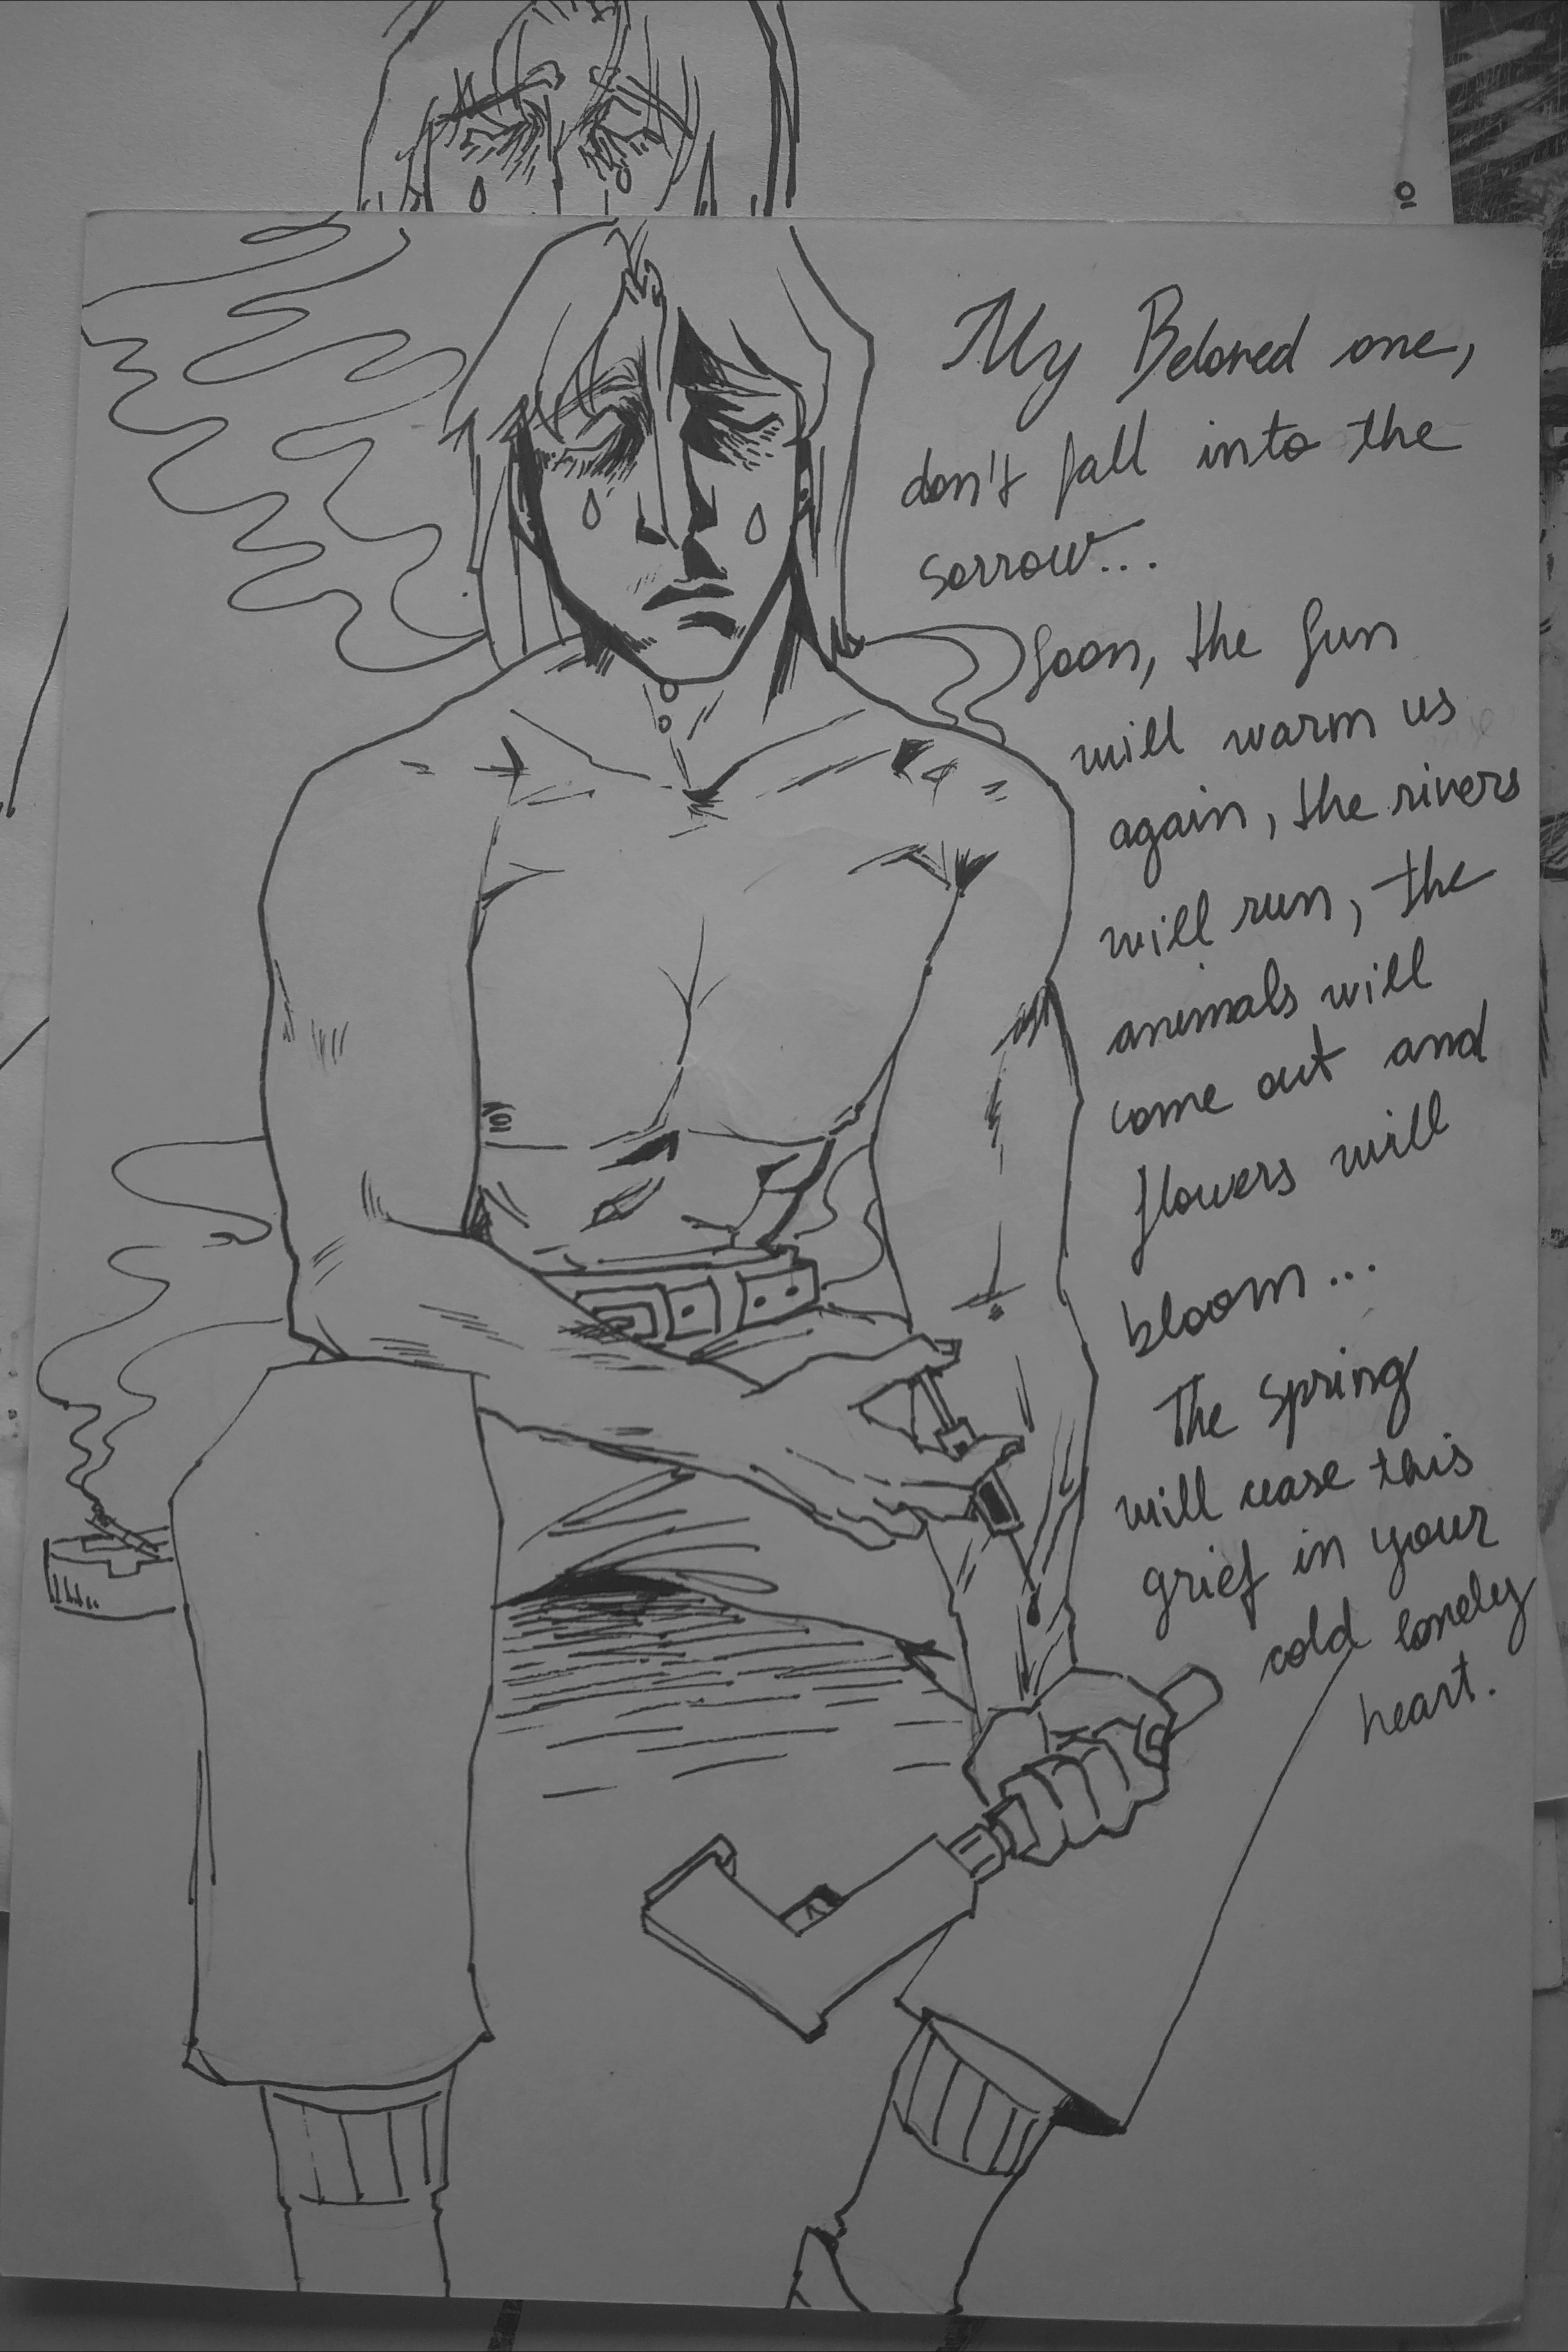 My Beloved one,
don't fall into the
sorrow...
Soon, the Sun
will warm us
again, the rivers
will run, the
animals will
come out and
flowers will
bloom...
The Spring
will cease this
grief in your
cold lonely
heart.